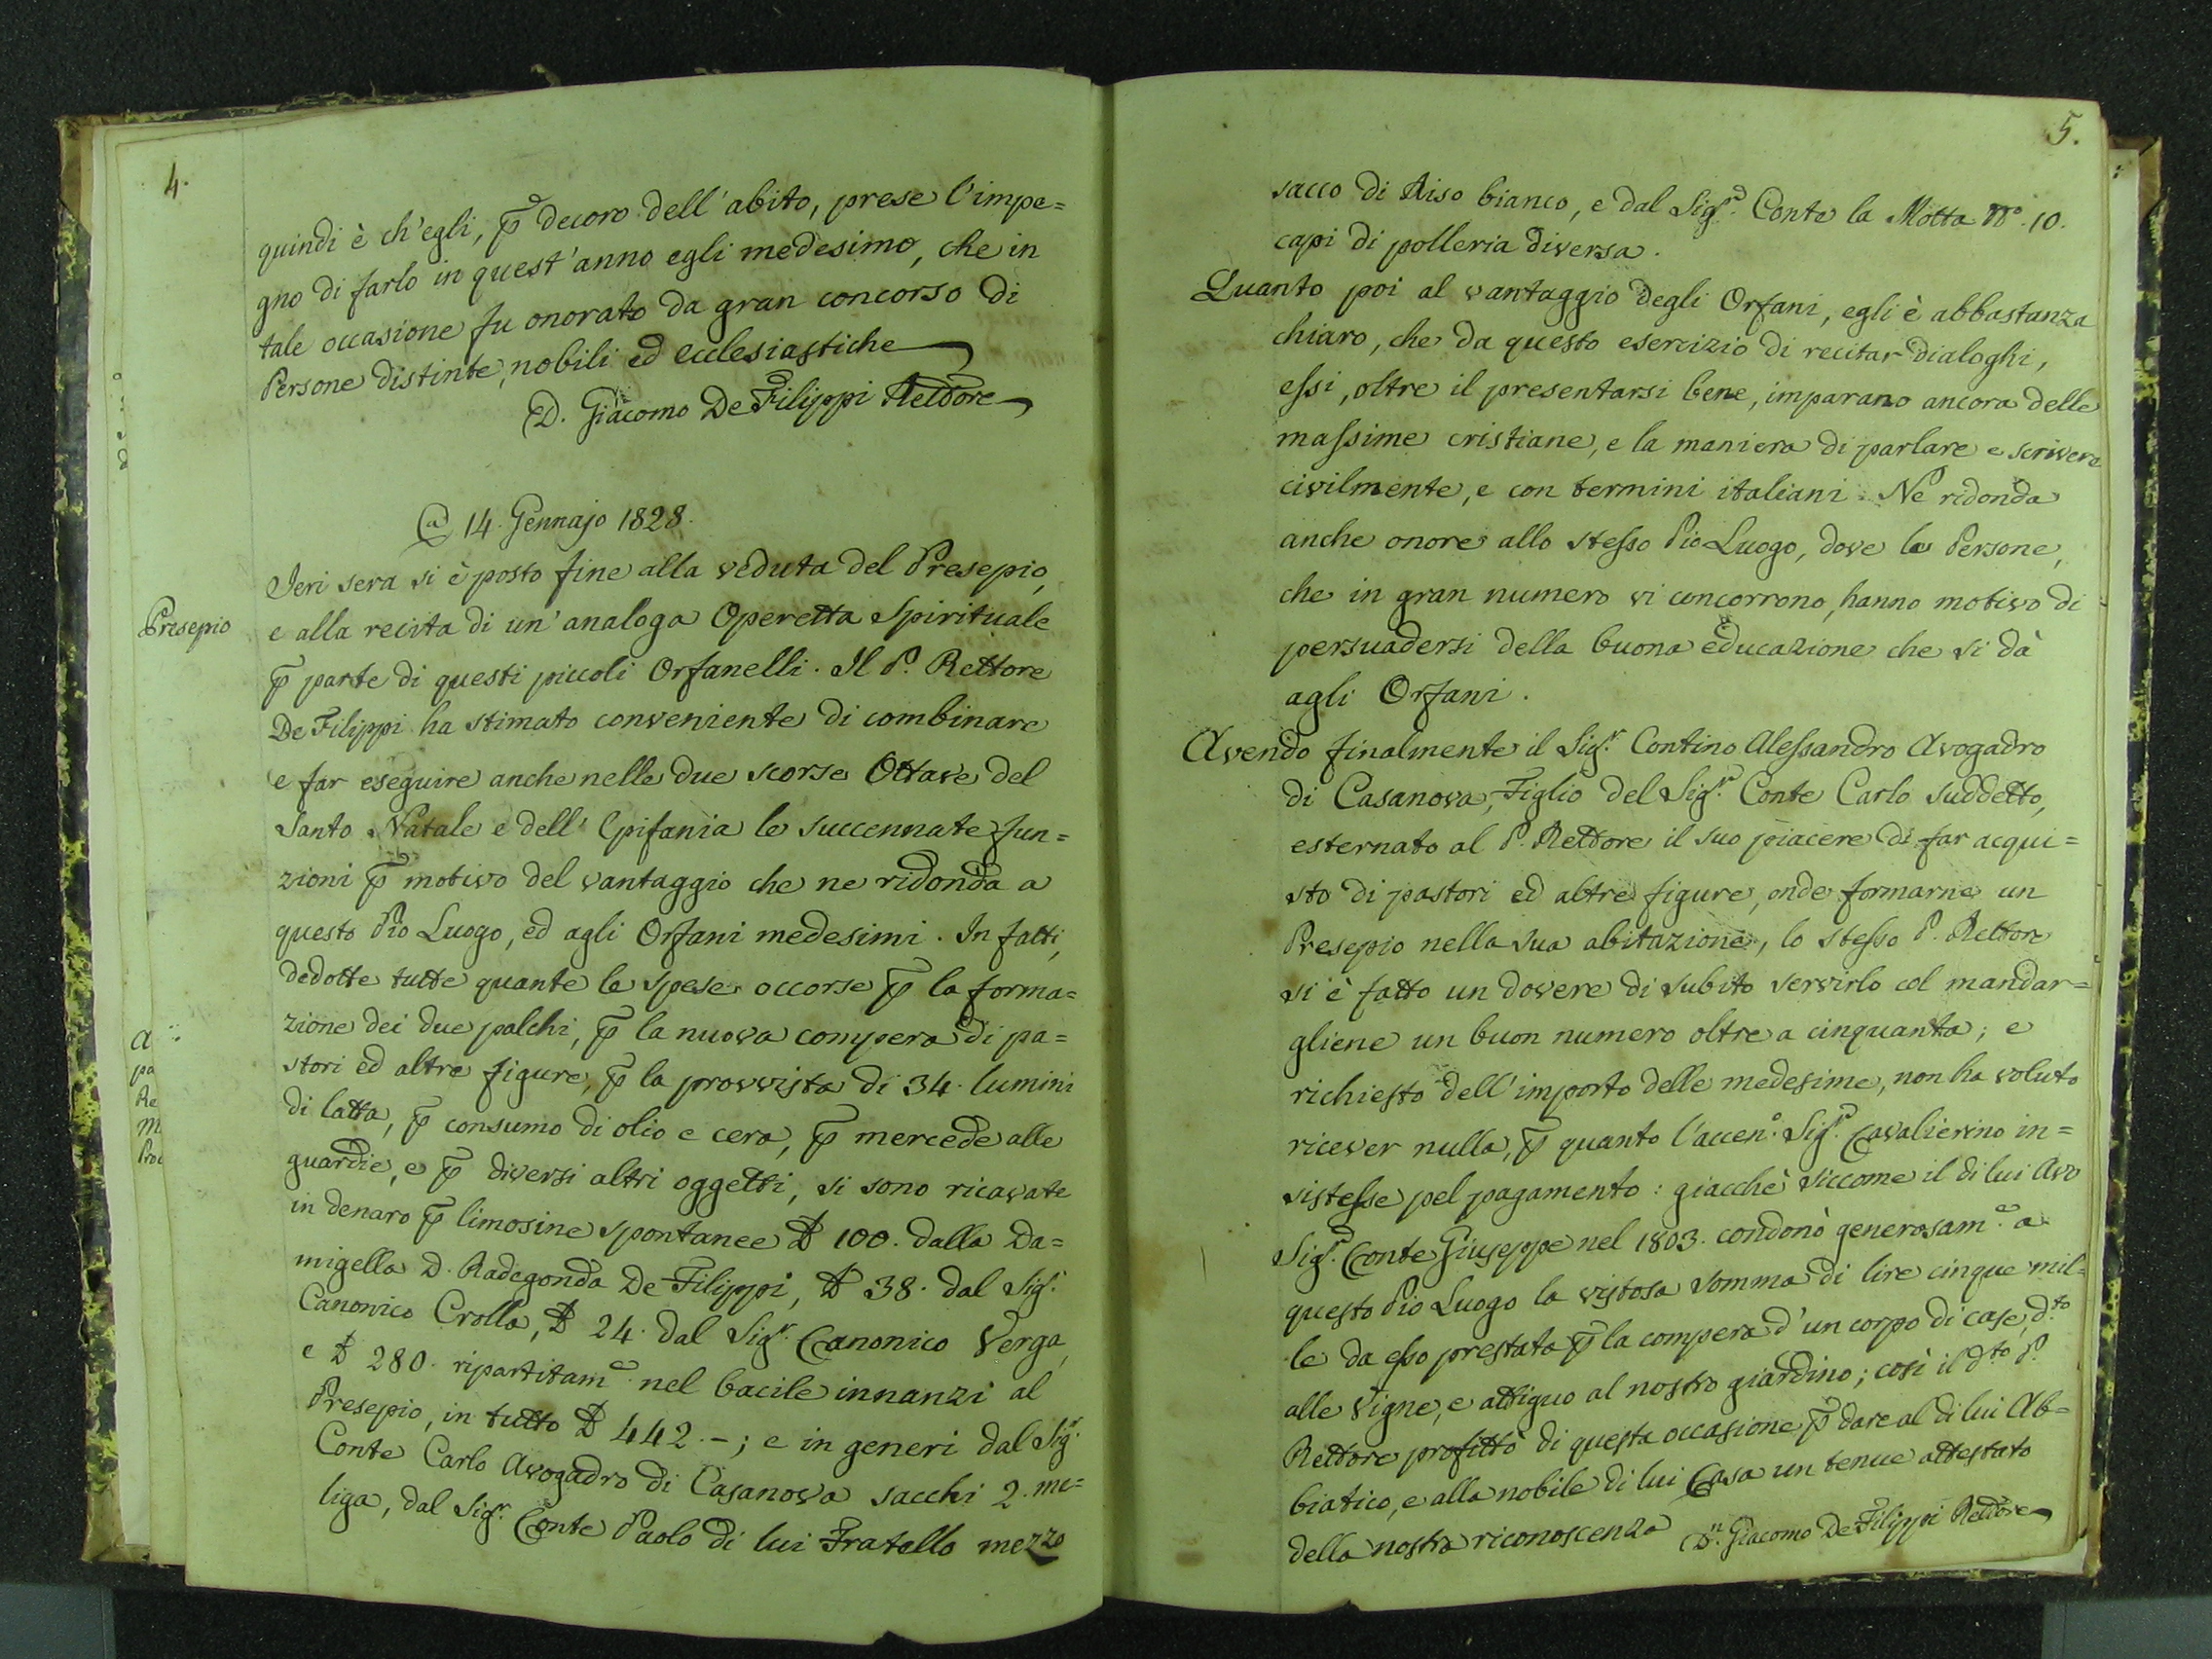 4.
quindi è ch'egli, p̄ decoro dell'abito, prese l'impe=
gno di farlo in quest'anno egli medesimo, che in
tale occasione fu onorato da gran concorso di
Persone distinte, nobili ed ecclesiastiche
D. Giacomo De Filippi Rettore
@ 14. Gennajo 1828.
Presepio
Jeri sera si è posto fine alla veduta del Presepio,
e alla recita di un'analoga Operetta Spirituale
p̄ parte di questi piccoli Orfanelli. Il P. Rettore
De Filippi ha stimato conveniente di combinare
e far eseguire anche nelle due scorse Ottave del
Santo Natale e dell'Epifania le succennate fun=
zioni p̄ motivo del vantaggio che ne ridonda a
questo Pio Luogo, ed agli Orfani medesimi. In fatti,
dedotte tutte quante le spese occorse p̄ la forma=
zione dei due palchi, p̄ la nuova compera di pa=
stori ed altre figure, p̄ la provvista di 34. lumini
di latta, p̄ consumo di olio e cera, p̄ mercede alle
guardie, e p̄ diversi altri oggetti, si sono ricavate
in denaro p̄ limosine spontanee ₶ 100. dalla Da=
migella D. Radegonda De Filippi, ₶ 38. dal Sig.r
Canonico Crolla, ₶ 24. dal Sig.r Canonico Verga,
e ₶ 280. ripartitam.e nel bacile innanzi al
Presepio, in tutto ₶ 442.-; e in generi dal Sig.r
Conte Carlo Avogadro di Casanova sacchi 2. me=
liga, dal Sig.r Conte Paolo di lui Fratello mezzo
5.
sacco di Riso bianco, e dal Sig.r Conte la Motta N.o 10.
capi di polleria diversa.
Quanto poi al vantaggio degli Orfani, egli è abbastanza
chiaro, che da questo esercizio di recitar dialoghi,
essi, oltre il presentarsi bene, imparano ancora delle
massime cristiane, e la maniera di parlare e scrivere
civilmente, e con termini italiani. Ne ridonda
anche onore allo stesso Pio Luogo, dove le Persone,
che in gran numero vi concorrono, hanno motivo di
persuadersi della buona educazione che si dà
agli Orfani.
Avendo finalmente il Sig.r Contino Alessandro Avogadro
di Casanova, Figlio del Sig.r Conte Carlo suddetto,
esternato al P. Rettore il suo piacere di far acqui=
sto di pastori ed altre figure, onde formarne un
Presepio nella sua abitazione, lo stesso P. Rettore
si è fatto un dovere di subito servirlo col mandar=
gliene un buon numero oltre a cinquanta; e
richiesto dell'importo delle medesime, non ha voluto
ricever nulla, p̄ quanto l'accen.o Sig.r Cavalierino in=
sistesse pel pagamento: giacchè siccome il di lui Avo
Sig.r Conte Giuseppe nel 1803. condonò generosam.e a
questo Pio Luogo la vistosa somma di lire cinque mil=
le da esso prestata p̄ la compera d'un corpo di case, d.to
alle Vigne, e attiguo al nostro giardino; così il d.to P.
Rettore profittò di questa occasione p̄ dare al di lui Ab=
biatico, e alla nobile di lui Casa un tenue attestato
della nostra riconoscenza D.n Giacomo De Filippi Rettore